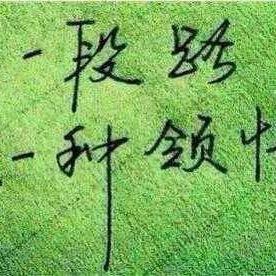 一段路
一种领